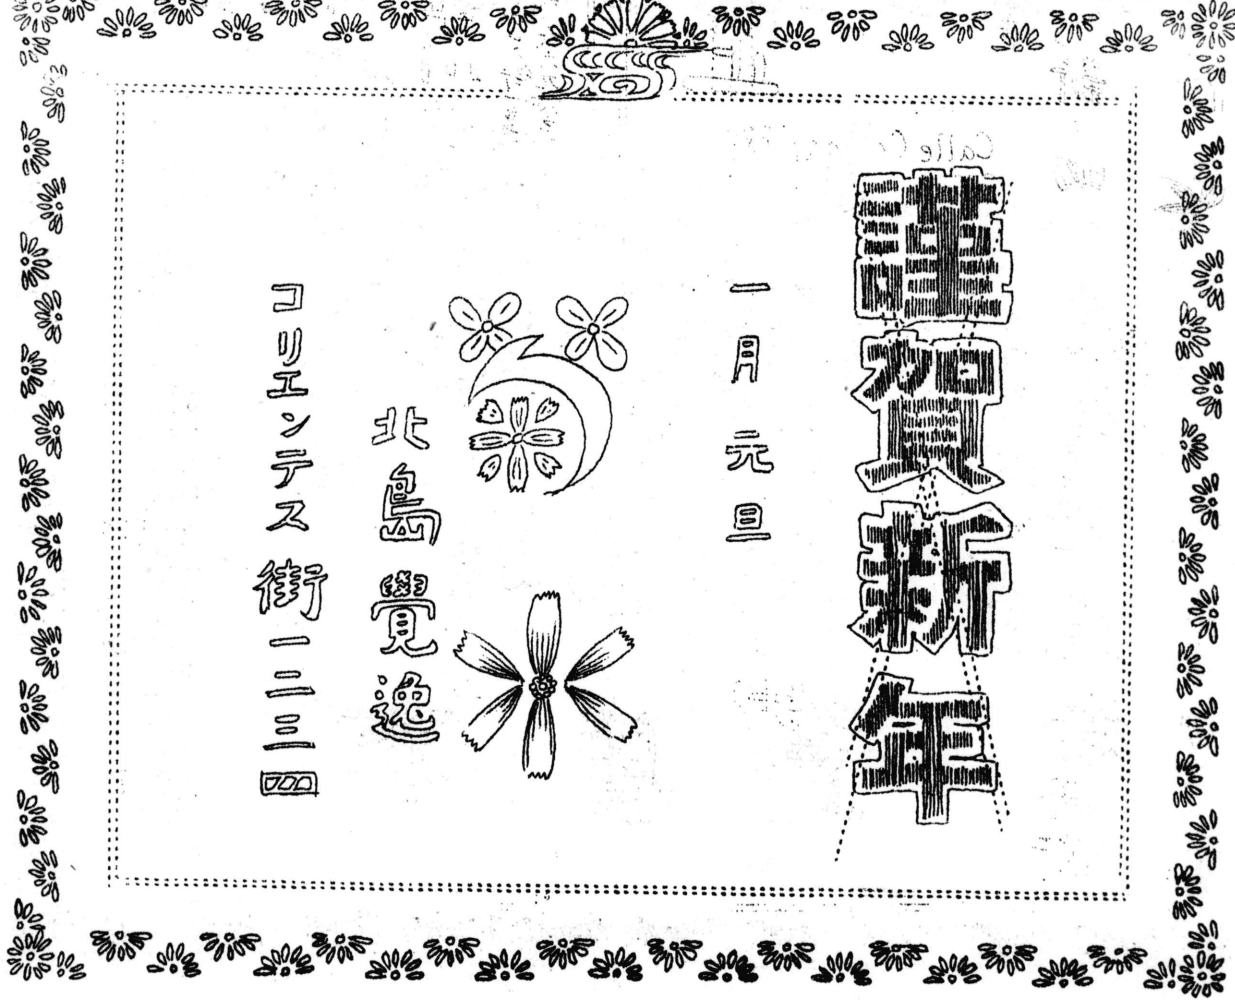 謹賀新年
一月元旦
北島覺逸
コリエンテス街一二三四